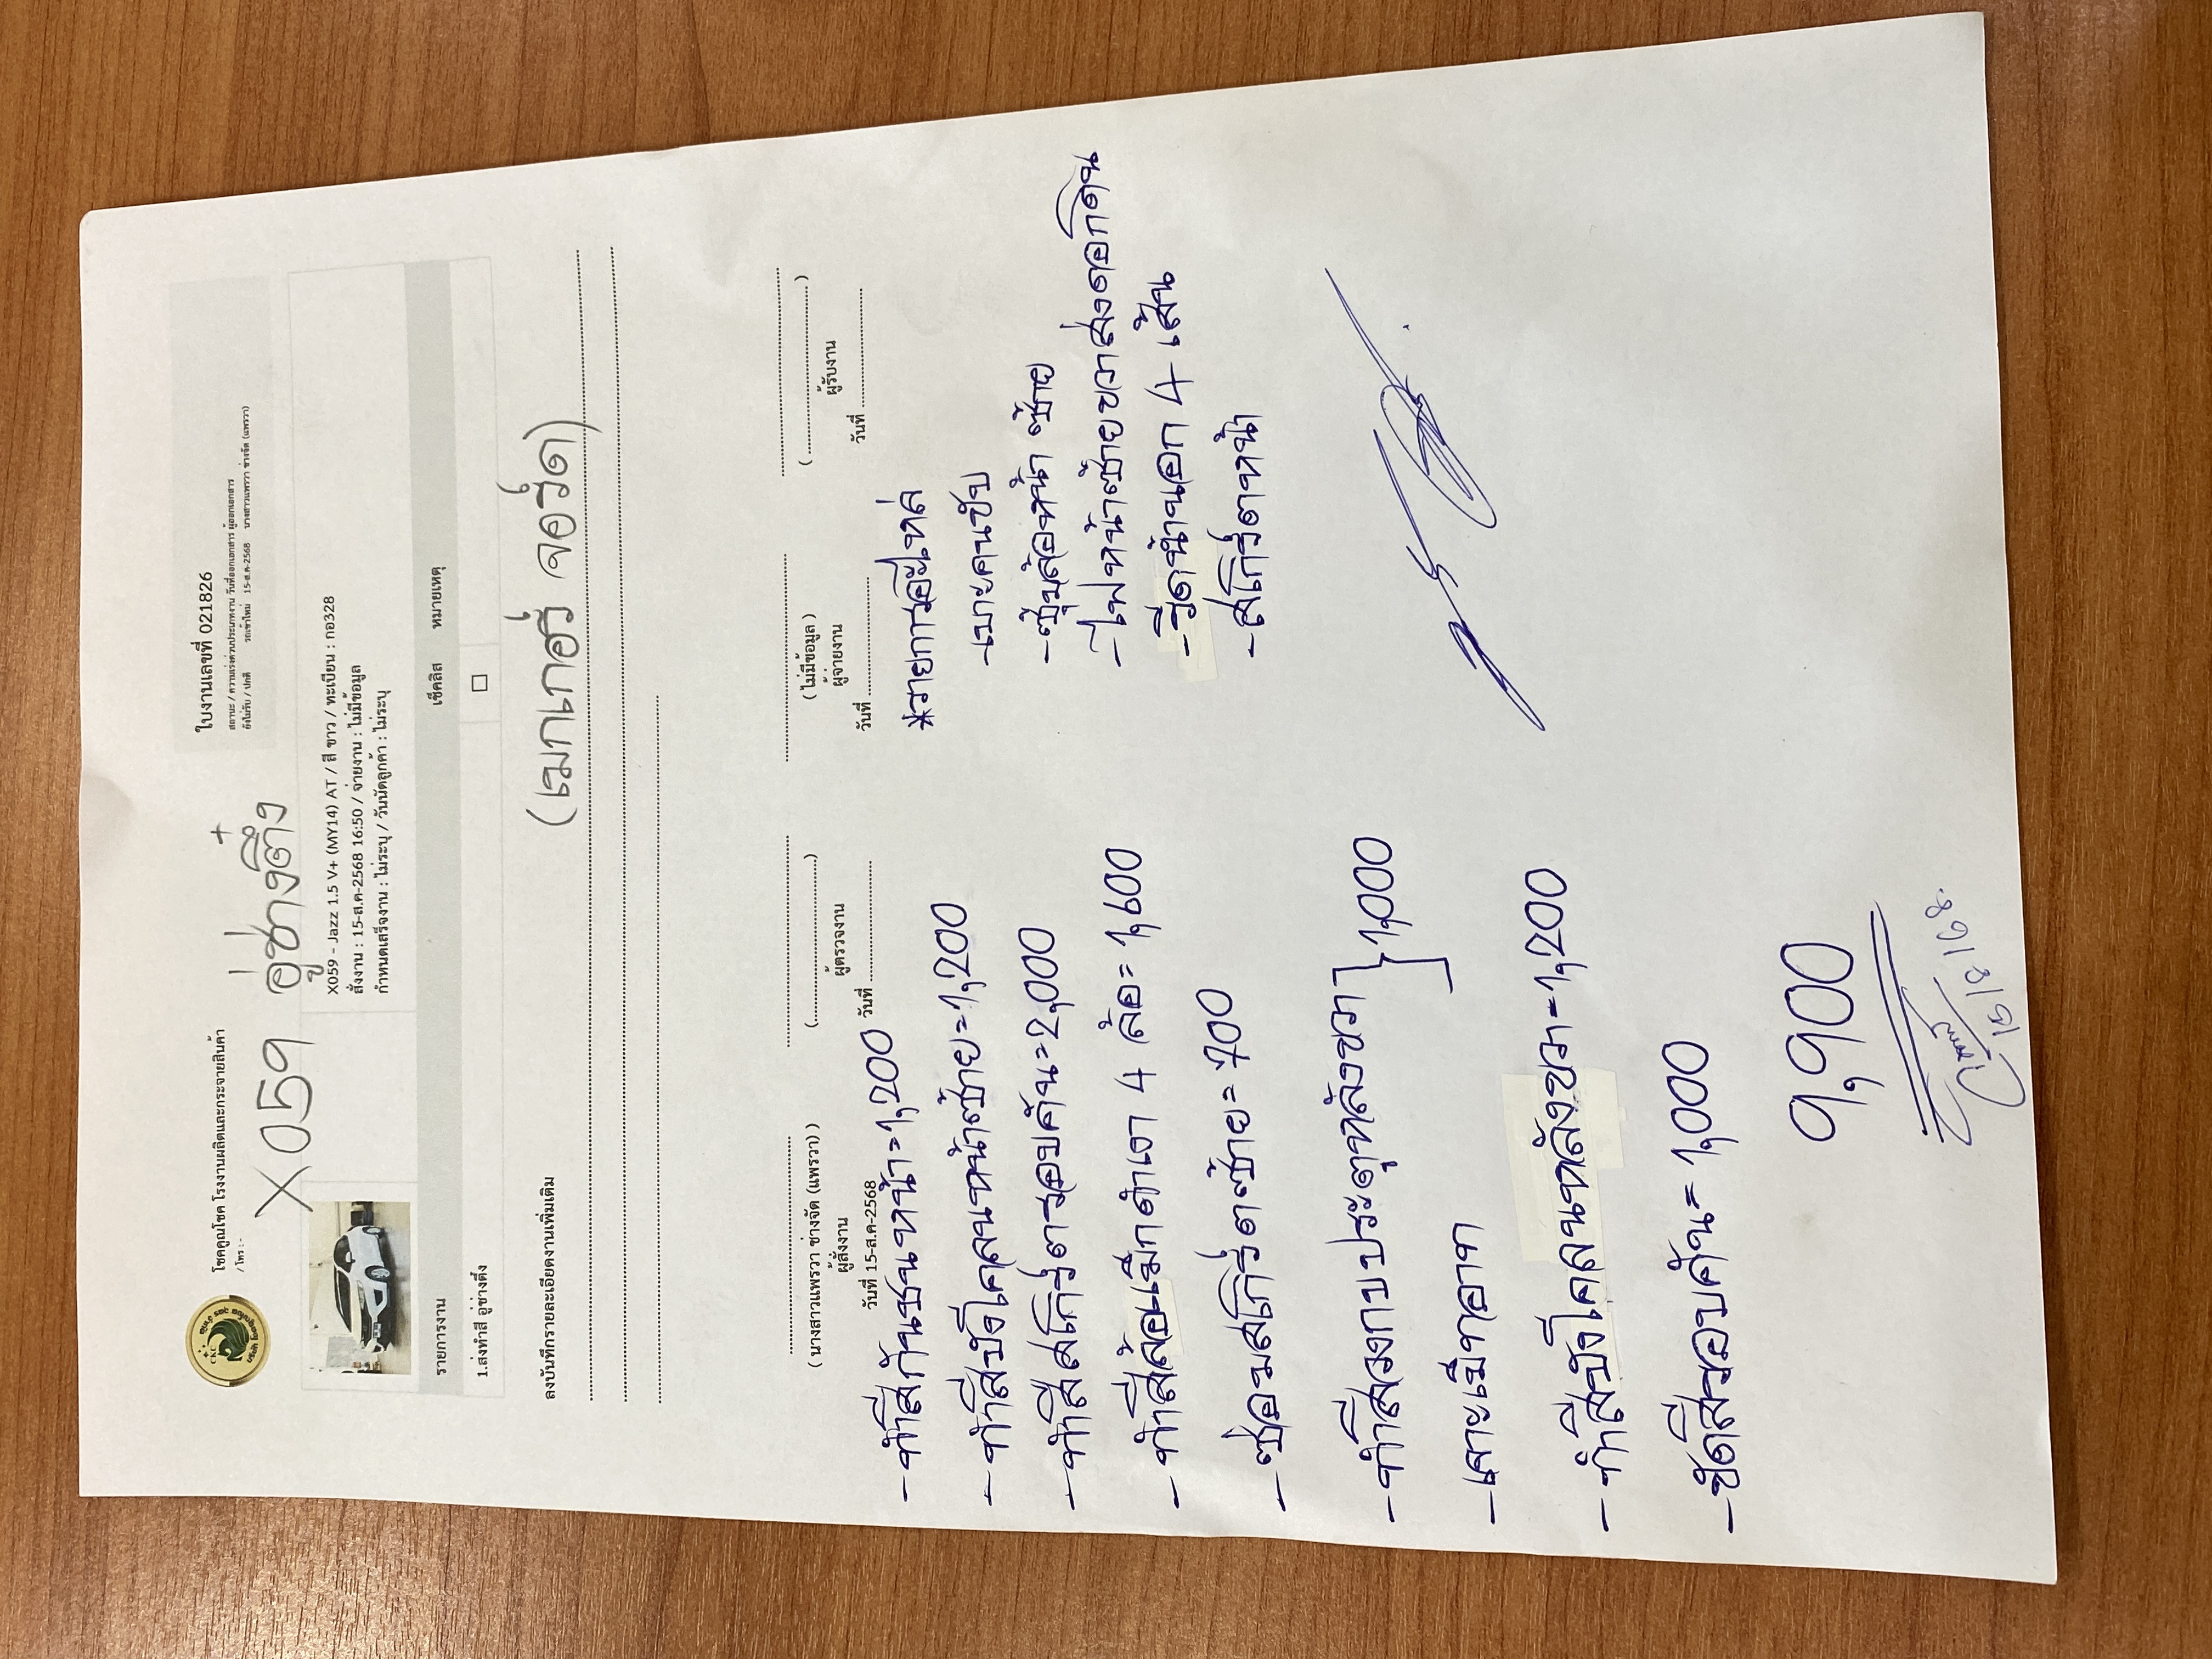 โชคคูณโชค โรงงานผลิตและกระจายสินค้า
/ โทร : -
ใบงานเลขที่ 021826
สถานะ / ความเร่งด่วนประเภทงาน วันที่ออกเอกสาร ผู้ออกเอกสาร
ยังไม่รับ / ปกติ รถเข้าใหม่ 15-ส.ค-2568 นางสาวแพรวา ช่างจัด (แพรวา)
X059 อู่ช่างติ่ง
X059 - Jazz 1.5 V+ (MY14) AT / สี ขาว / ทะเบียน : กอ328
สั่งงาน : 15-ส.ค-2568 16:50 / จ่ายงาน : ไม่มีข้อมูล
กำหนดเสร็จงาน : ไม่ระบุ / วันนัดลูกค้า : ไม่ระบุ
รายการงาน เช็คลิส หมายเหตุ
1.ส่งทำสี อู่ช่างติ่ง
ลงบันทึกรายละเอียดงานเพิ่มเติม
(เมกเกอร์ จอร์ด)
( นางสาวแพรวา ช่างจัด (แพรวา) )
ผู้สั่งงาน
วันที่ 15-ส.ค-2568
ผู้ตรวจงาน
วันที่
( ไม่มีข้อมูล )
ผู้จ่ายงาน
วันที่
ผู้รับงาน
วันที่
- ทำสีกันชนหน้า = 1,200
- ทำสีบังโคลนหน้าซ้าย = 1,200
- ทำสีสเกิร์ตรอบคัน = 2,000
- ทำสีล้อแม็กดำเงา 4 ล้อ = 1,600
- ซ่อมสเกิร์ตซ้าย = 700
- ทำสีวงกบประตูหลังขวา } 1,000
- เคาะเบ้าหอาา
- ทำสีบังโคลนหลังขวา = 1,200
- ขัดสีรอบคัน = 1,000
9,900
16/8/68.
*รายการอะไหล่
- เบาะคนขับ
- ซุ้มล้อหน้า ซ้าย
- ไฟหน้าซ้ายขวาส่งดอกิตน
- รีดน้ำนอก 4 เส้น
- สเกิร์ตหน้า